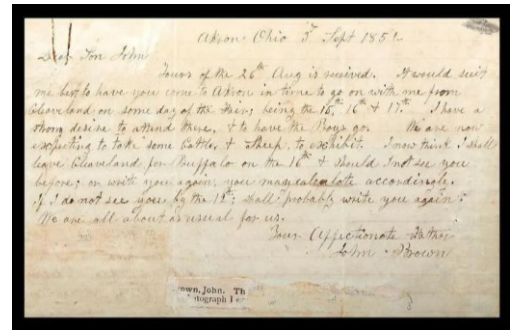 Akron Ohio 3d Sept 1851
Dear Son John
Yours of the 26th Aug is received. It would suit
me best to have you come to Akron in time to go on with me from
Cleaveland on some day of the Fair; being the 15th, 16th & 17th. I have a
strong desire to attend there, & to have the Boys go. We are now
expecting to take some Cattle, & Sheep, to exhibit. I now think I shall
leave Cleaveland for Buffalo on the 16th & should I not see you
before; or write you again, you may calculate accordingly.
If I do not see you by the 12th; shall probably write you again.
We are all about as usual for us.
Your Affectionate Father
John Brown
own, John. Th
utograph l